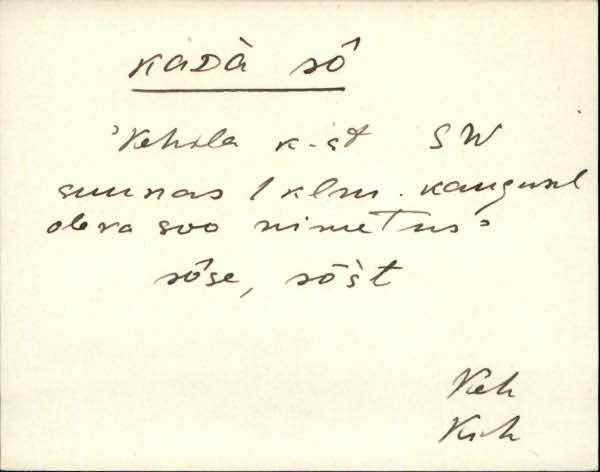 kaDà sô
'Kehila k-st SW
suunas 1 klm. kaugusel
oleva soo nimetus'
sôse, sōst
Keh